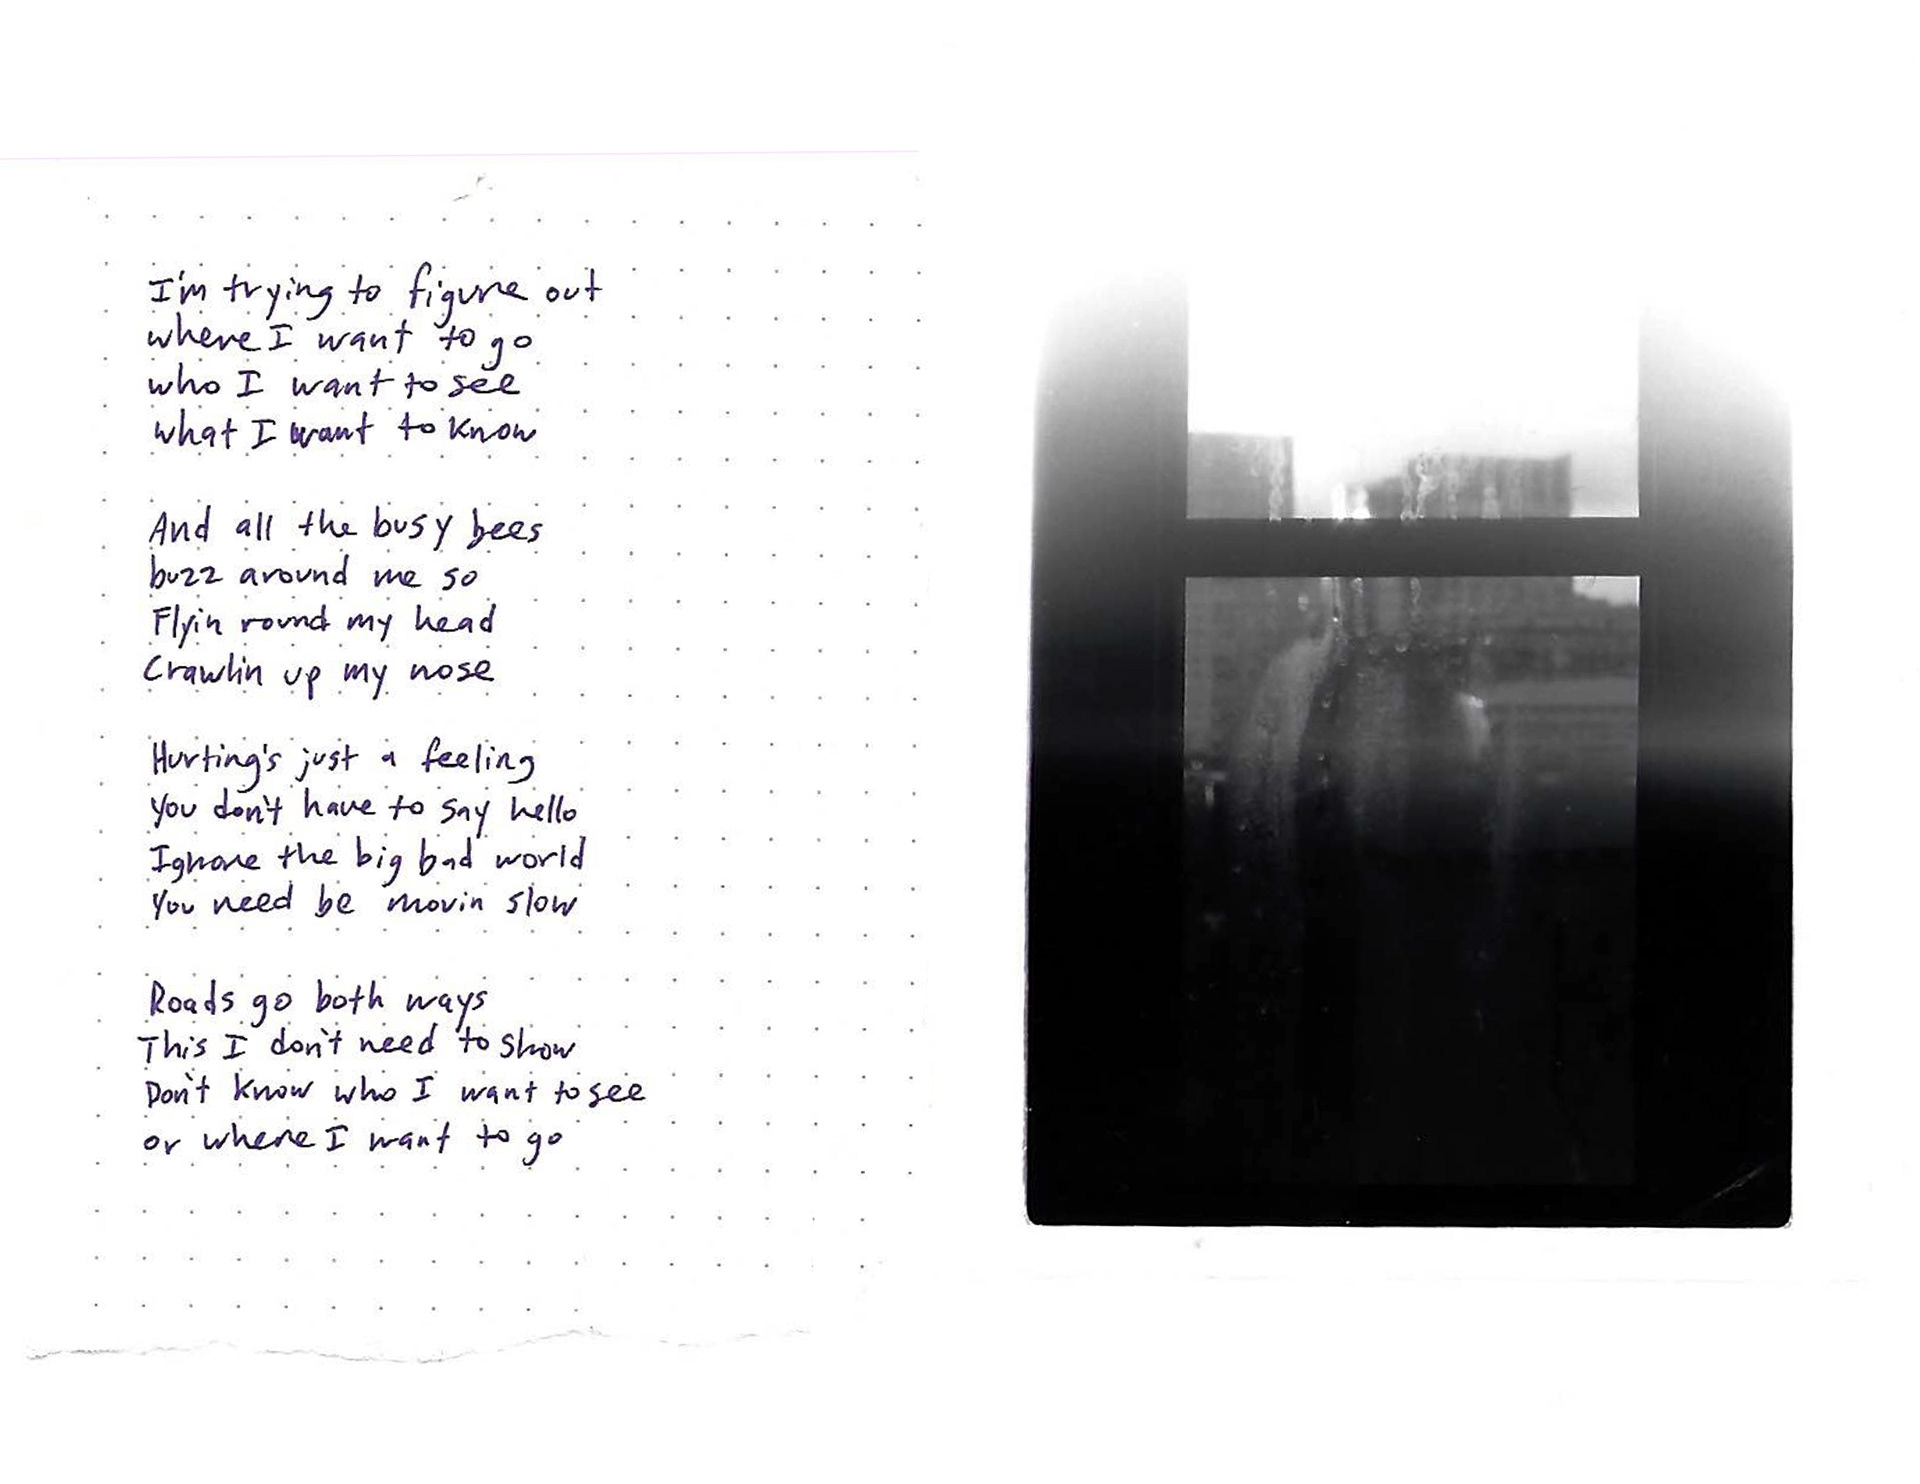 I'm trying to figure out
where I want to go
who I want to see
what I want to know
And all the busy bees
buzz around me so
Flyin round my head
Crawlin up my nose
Hurting's just a feeling
You don't have to say hello
Ignore the big bad world
You need be movin slow
Roads go both ways
This I don't need to show
Don't know who I want to see
or where I want to go